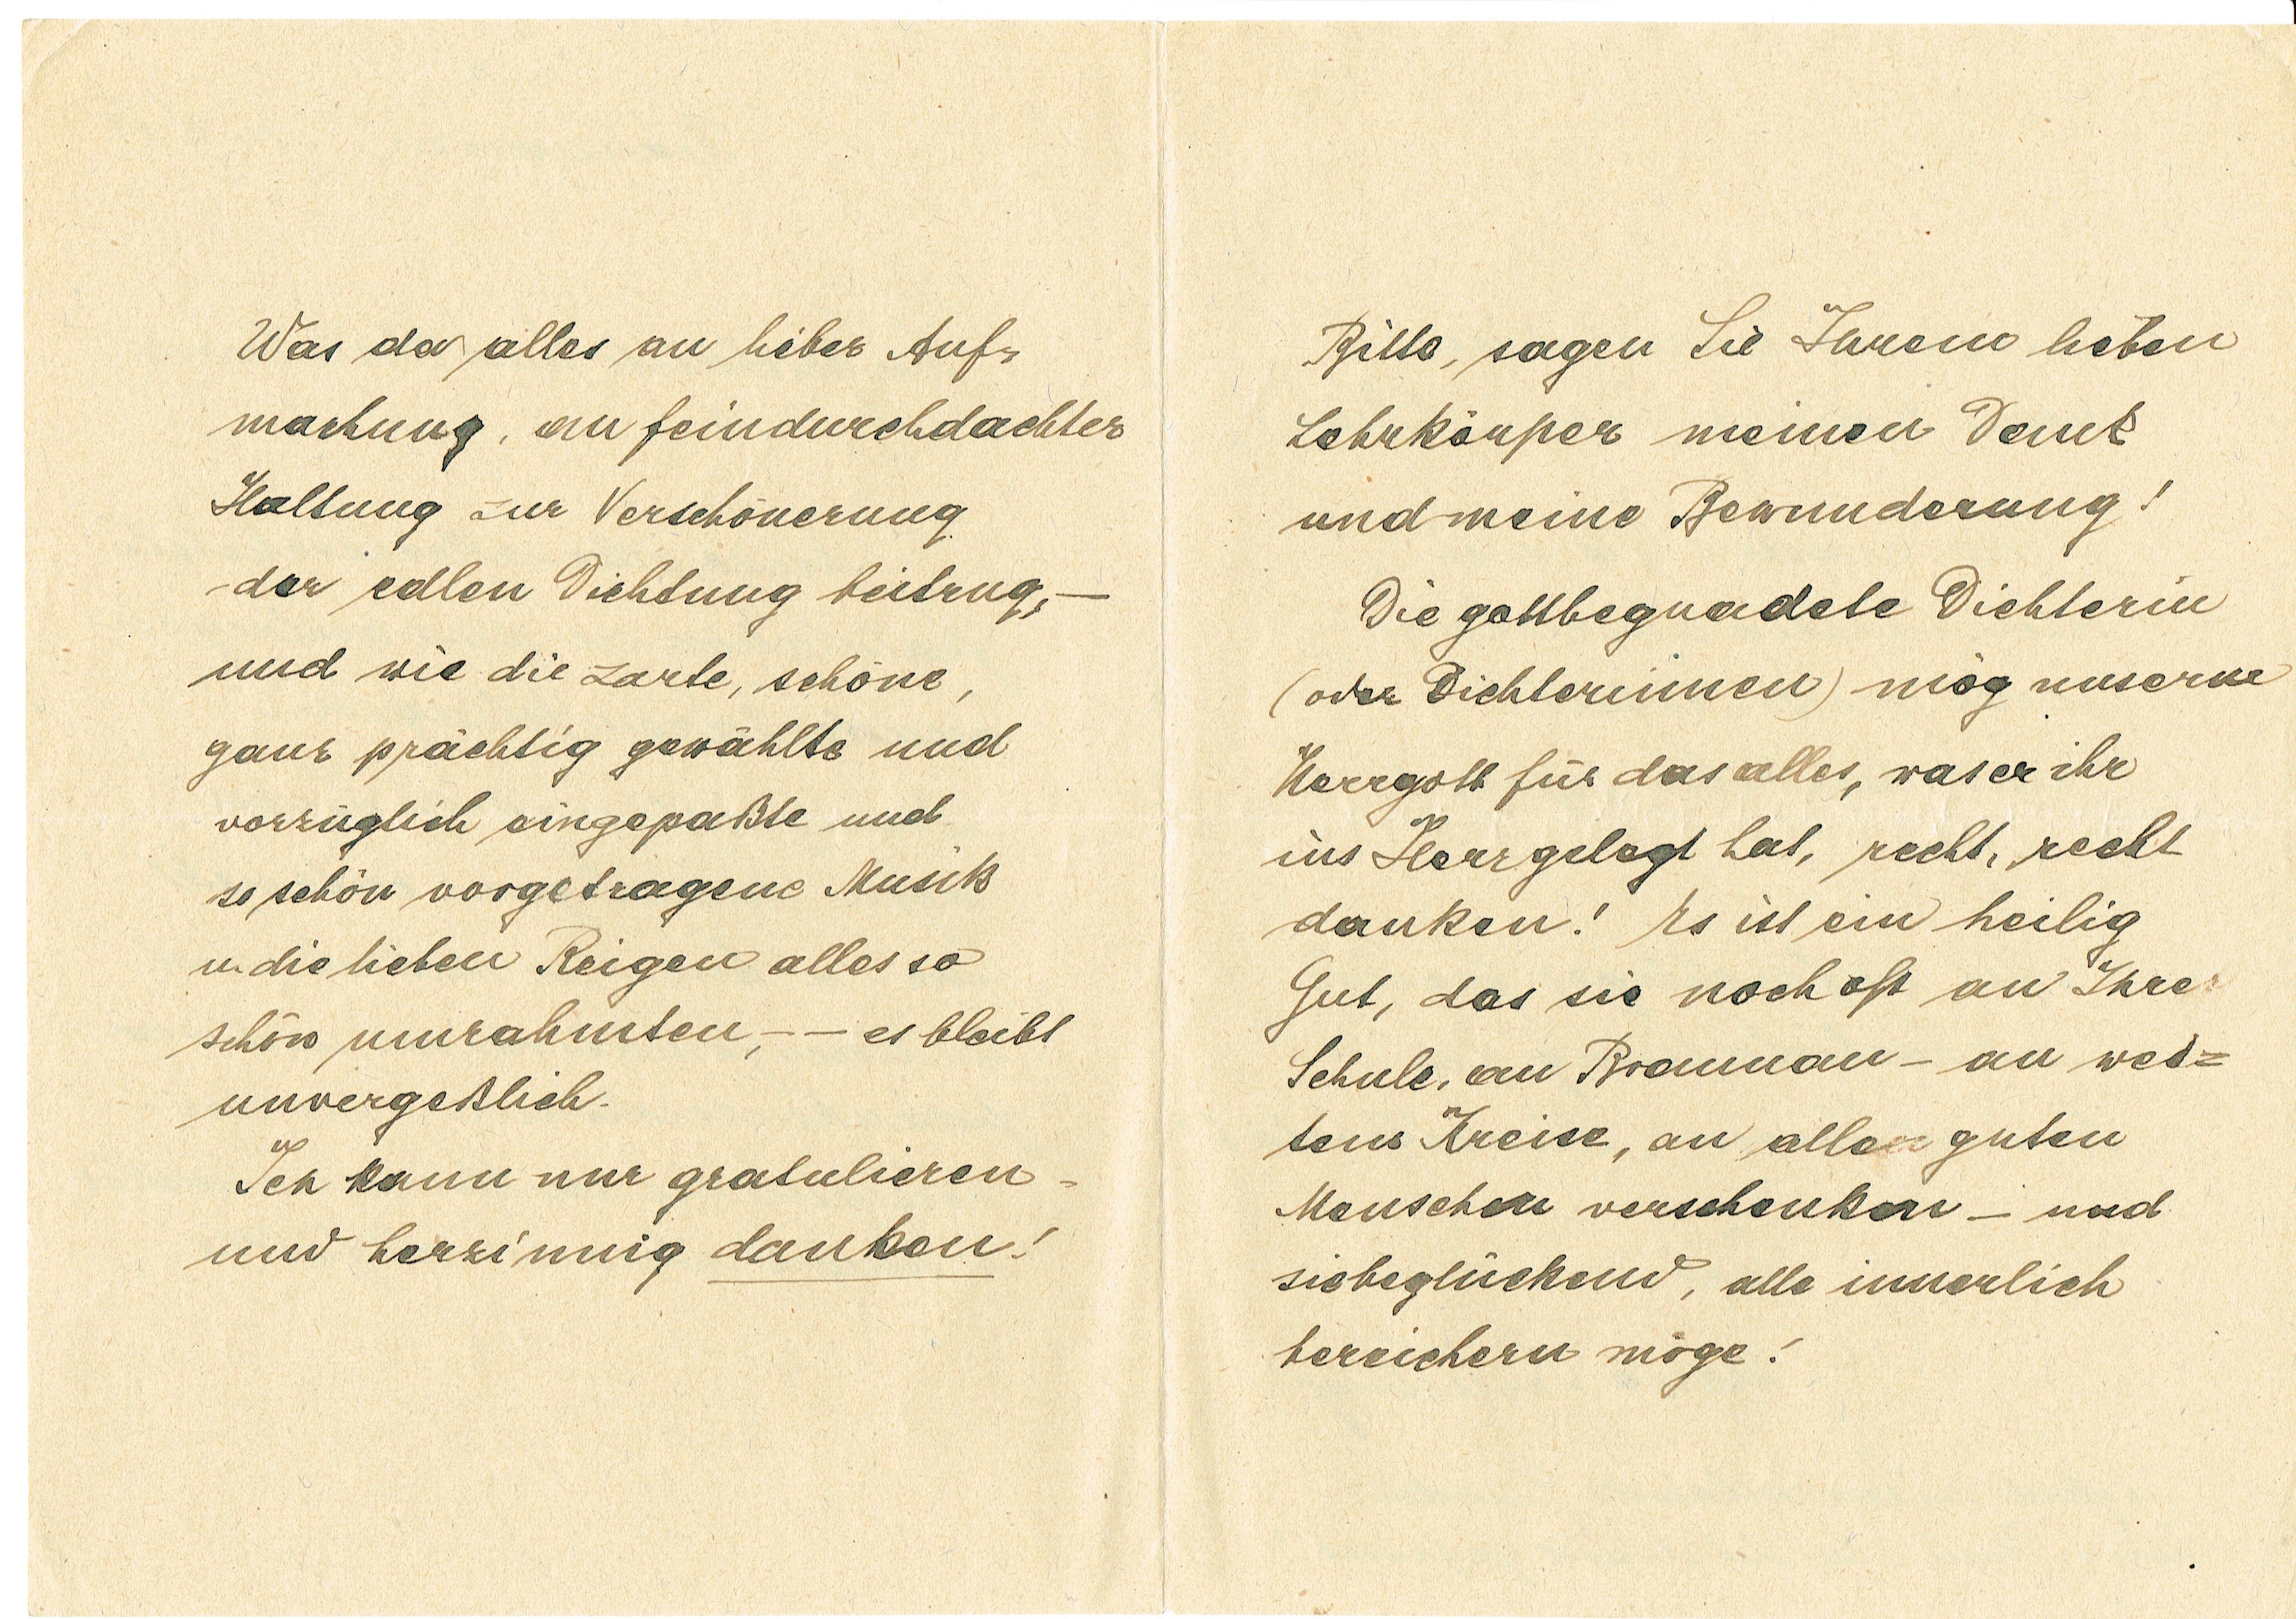 Was da alles an lieber Auf-
machung, an feindurchdachter
Haltung zur Verschönerung
der edlen Dichtung beitrug, —
und wie die zarte, schöne,
ganz prächtig gewählte und
vorzüglich eingepaßte und
so schön vorgetragene Musik
u. die lieben Reigen alles so
schön umrahmten, — — es bleibt
unvergeßlich.
Ich kann nur gratulieren -
und herzinnig danken!
Bitte, sagen Sie Ihrem lieben
Lehrkörper meinen Dank
und meine Bewunderung!
Die gottbegnadete Dichterin
(oder Dichterinnen) mög unserne
Herrgott für das alles, was er ihr
ins Herz gelegt hat, recht, recht
danken! Es ist ein heilig
Gut, das sie noch oft an Ihre
Schule, an Braunau — an wei=
tere Kreise, an alle guten
Menschen verschenken — und
sie beglückend, alle innerlich
bereichern möge!